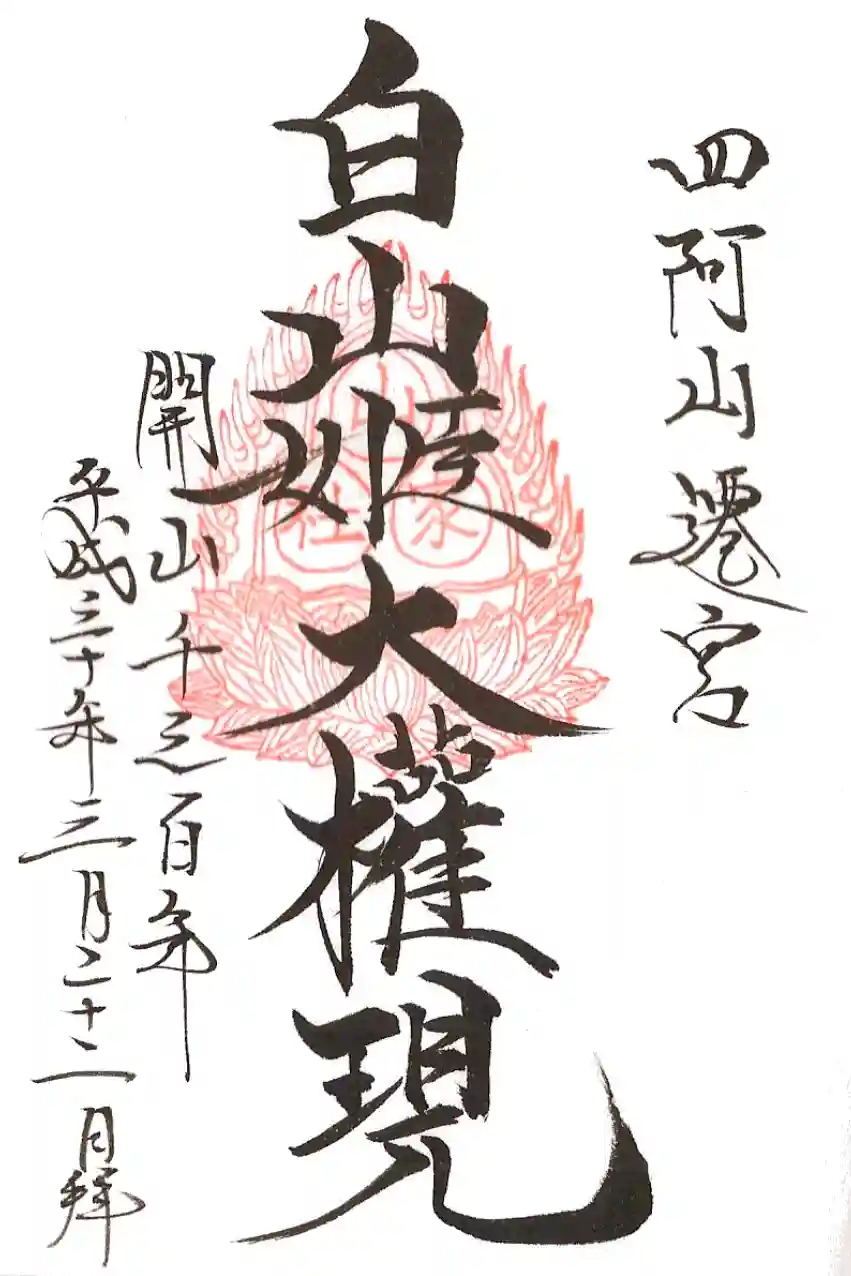 四阿山遷宮
白山姫大權現
開山千三百年
平成三十年三月二十二日拜